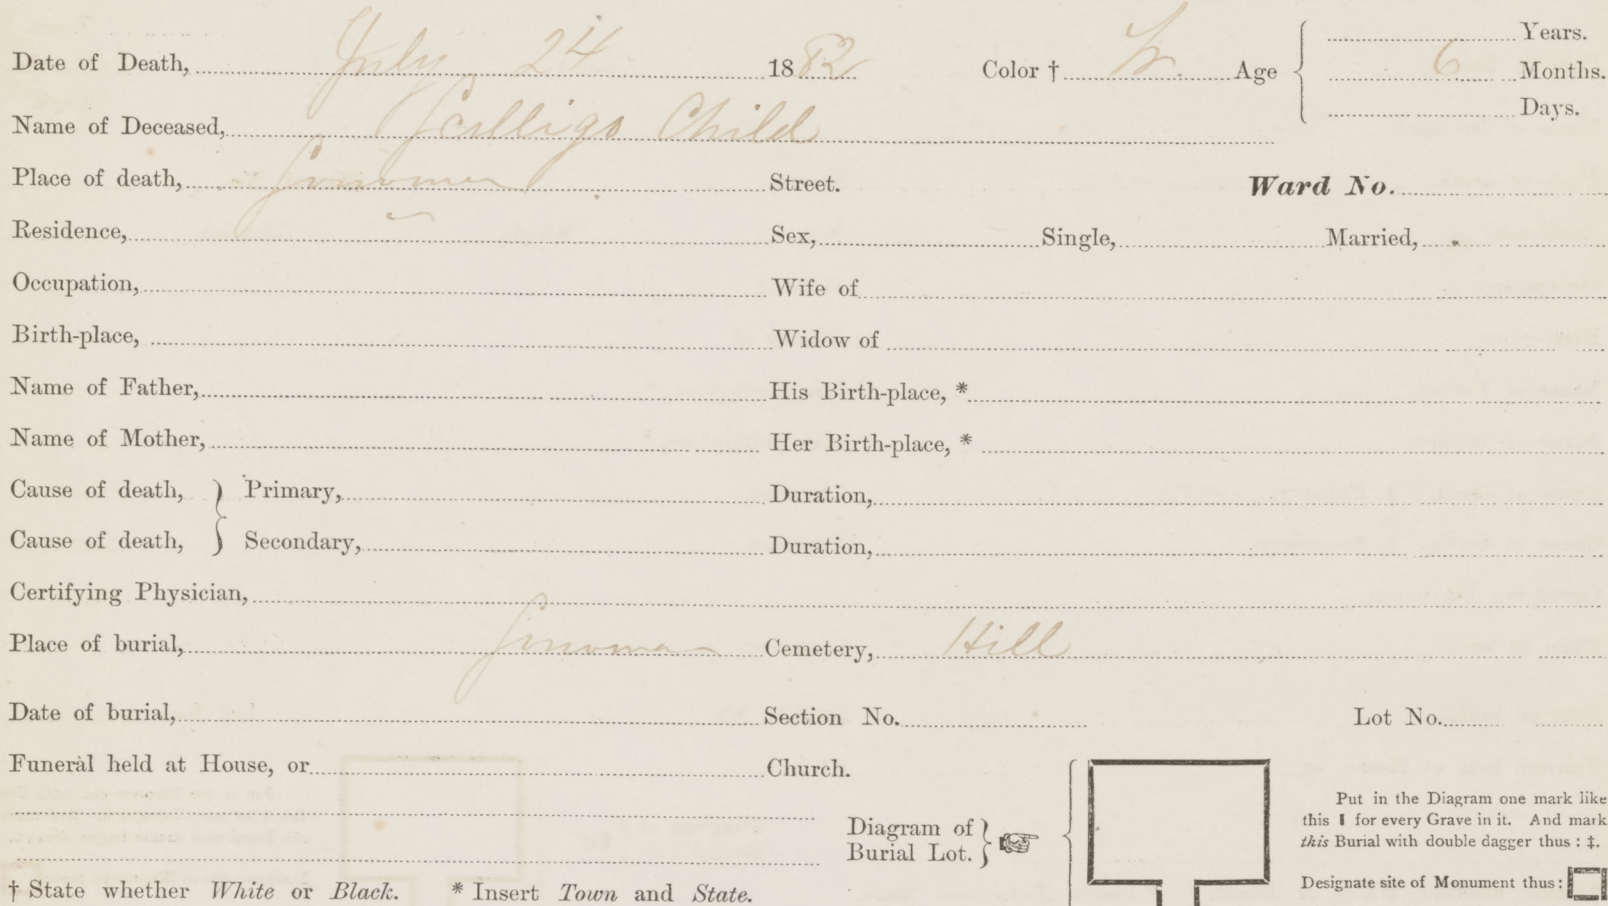 Date of Death, July 24 1882 Color † W. Age Years.
6 Months.
Days.
Name of Deceased, Child
Place of death, Street. Ward No.
Residence, Sex, Single, Married,
Occupation, Wife of
Birth-place, Widow of
Name of Father, His Birth-place, *
Name of Mother, Her Birth-place, *
Cause of death, Primary, Duration,
Cause of death, Secondary, Duration,
Certifying Physician,
Place of burial, Cemetery, Hill
Date of burial, Section No. Lot No.
Funeral held at House, or Church.
Diagram of Burial Lot.
Put in the Diagram one mark like
this I for every Grave in it. And mark
this Burial with double dagger thus : ‡.
Designate site of Monument thus :
† State whether White or Black. * Insert Town and State.